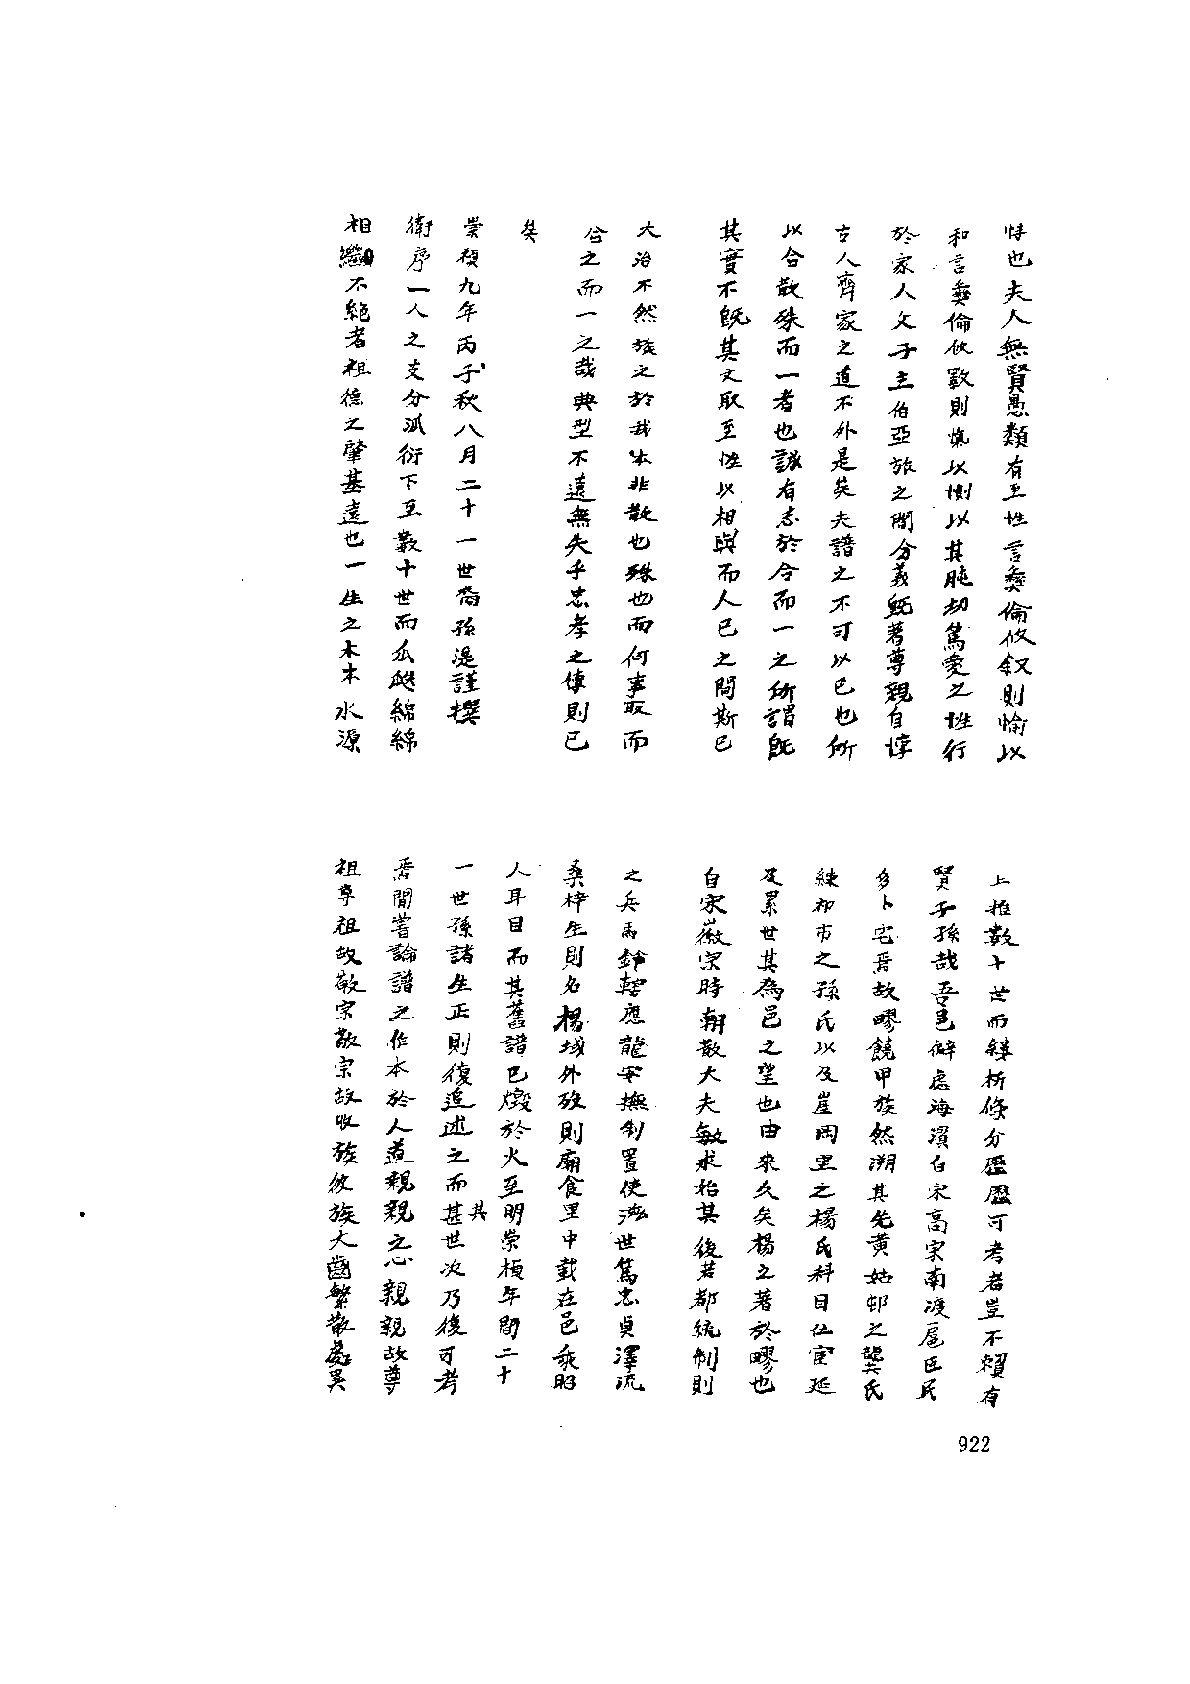 恃也夫人無賢愚類有至性言彝倫攸叙則愉以
和言彝倫攸斁則惻以其肫切篤愛之性行
於家人父子主伯亞旅之間分義旣著尊親自惇
古人齊家之道不外是矣夫譜之不可以已也所
以合散殊而一者也誠有志於合而一之所謂旣
其實不旣其文取至性以相與而人已之間斯已
大治不然族之於我本非散也殊也而何事取而
合之而一之哉典型不遠無失乎忠孝之傳則已
矣
崇禎九年丙子秋八月二十一世裔孫湜謹撰
衛序一人之支分派衍下至數十世而瓜瓞綿綿
相繼不絕者祖德之肇基遠也一生之木本水源
上推數十世而縷析條分歷歷可考者豈不賴有
賢子孫哉吾邑僻處海濱自宋高宗南渡扈臣民
多卜宅焉故璆饒甲族然溯其先黃姑邨之龔氏
練祁市之孫氏以及崖岡里之楊氏科目仕宦延
及累世其為邑之望也由來久矣楊之著於璆也
自宋徽宗時朝散大夫敏求始其後若都統制則
之兵馬鈐轄應龍安撫制置使濟世篤忠貞澤流
桑梓生則名楊域外歿則廟食里中載在邑乘昭
人耳目而其舊譜已燬於火至明崇楨年間二十
一世孫諸生正則復追述之而其甚世次乃復可考
焉間嘗論譜之作本於人道親親之心親親故尊
祖尊祖故敬宗敬宗故收族彼族大齒繁散處異
922